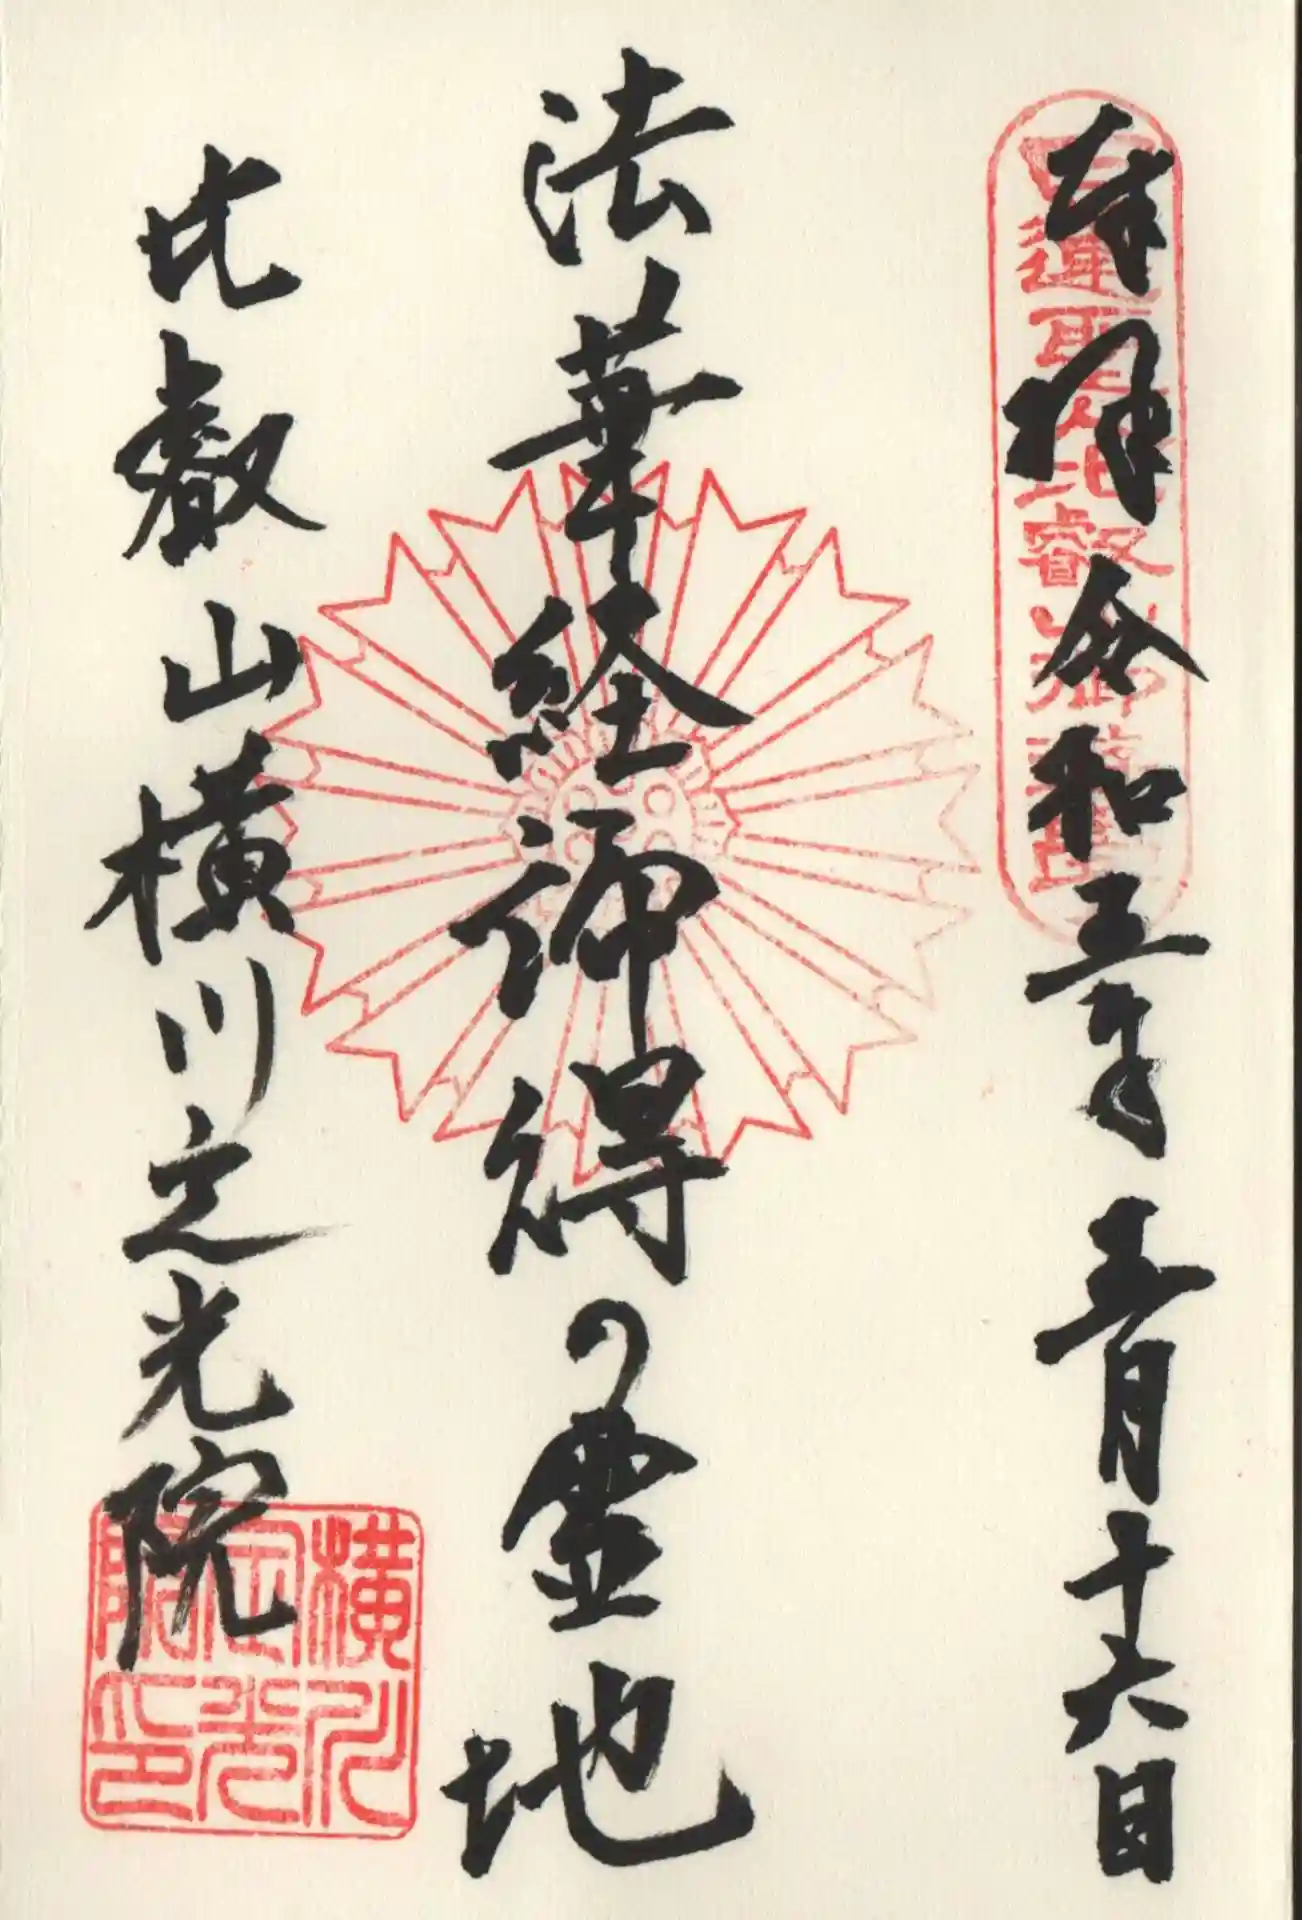 奉拝 令和五年五月十六日
日蓮聖人比叡山御
法華経諦得の霊地
比叡山横川定光院
横川
定光
院印